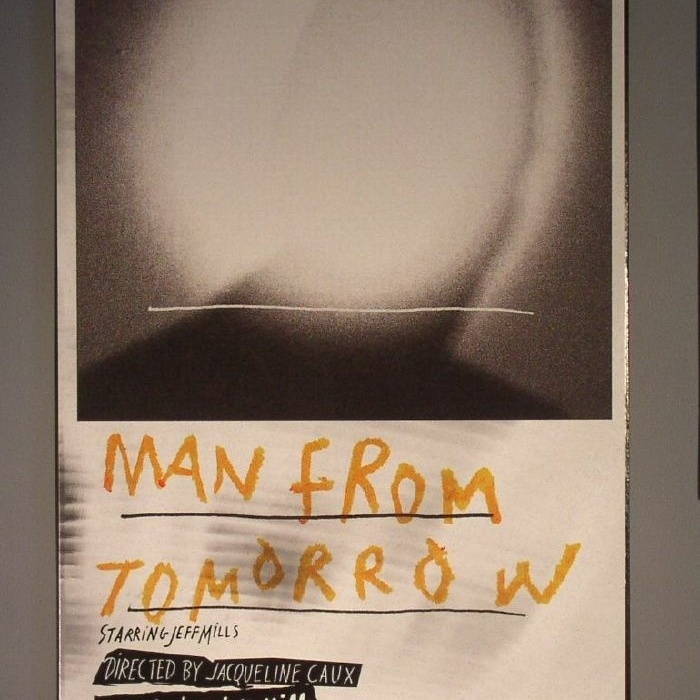 MAN FROM
TOMORROW
STARRING JEFF MILLS
DIRECTED BY JACQUELINE CAUX